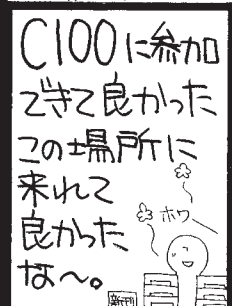 C100に参加
できて良かった
この場所に
来れて
良かった
な〜。
ホワ〜
新刊